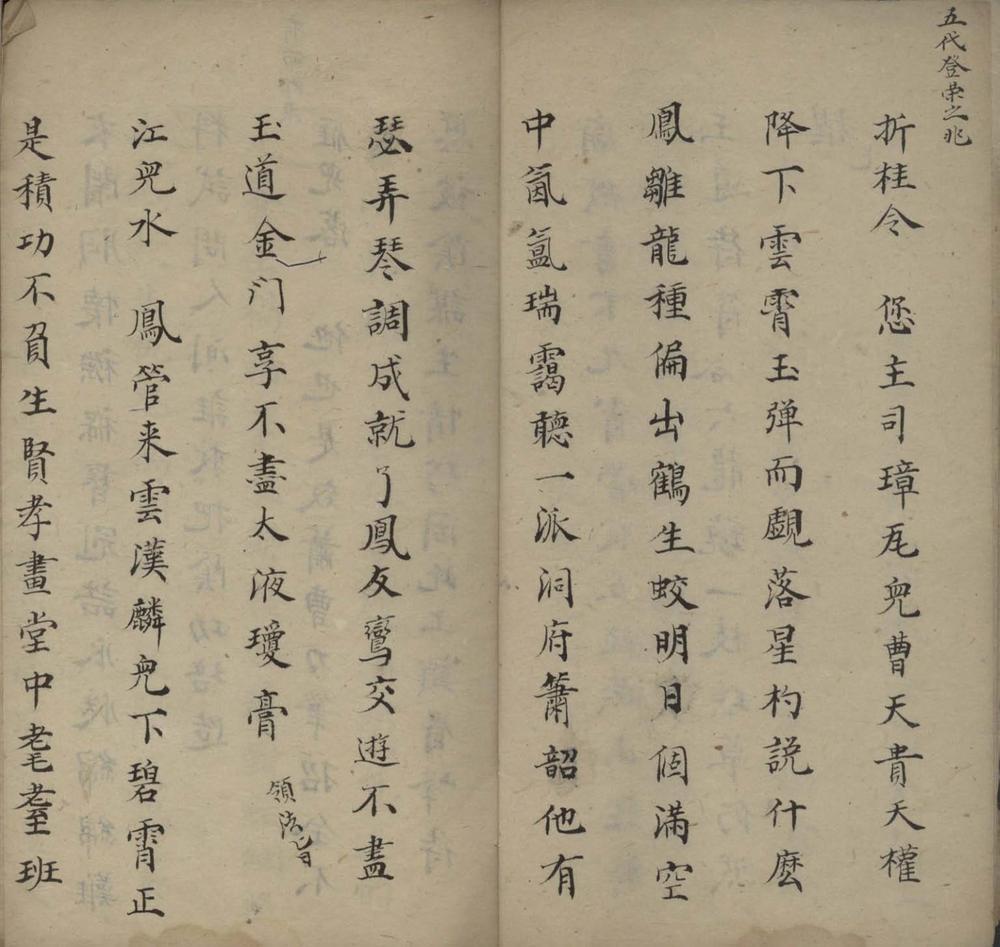 五代登荣之兆
折桂令　您主司璋瓦兒曹天貴天權
降下雲霄玉弹而覷落星杓説什麽
鳳雛龍種偏出鶴生蛟明日個满空
中氤氲瑞靄聽一派洞府簫韶他有
瑟弄琴調成就了鳳友鸞交遊不盡
玉道金门享不盡太液瓊膏
領法旨
江兒水　鳳管来雲漢麟兒下碧霄正
是積功不負生賢孝畫堂中耄耋班